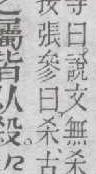 曰說文無杀
張參曰杀古
屬皆从殺